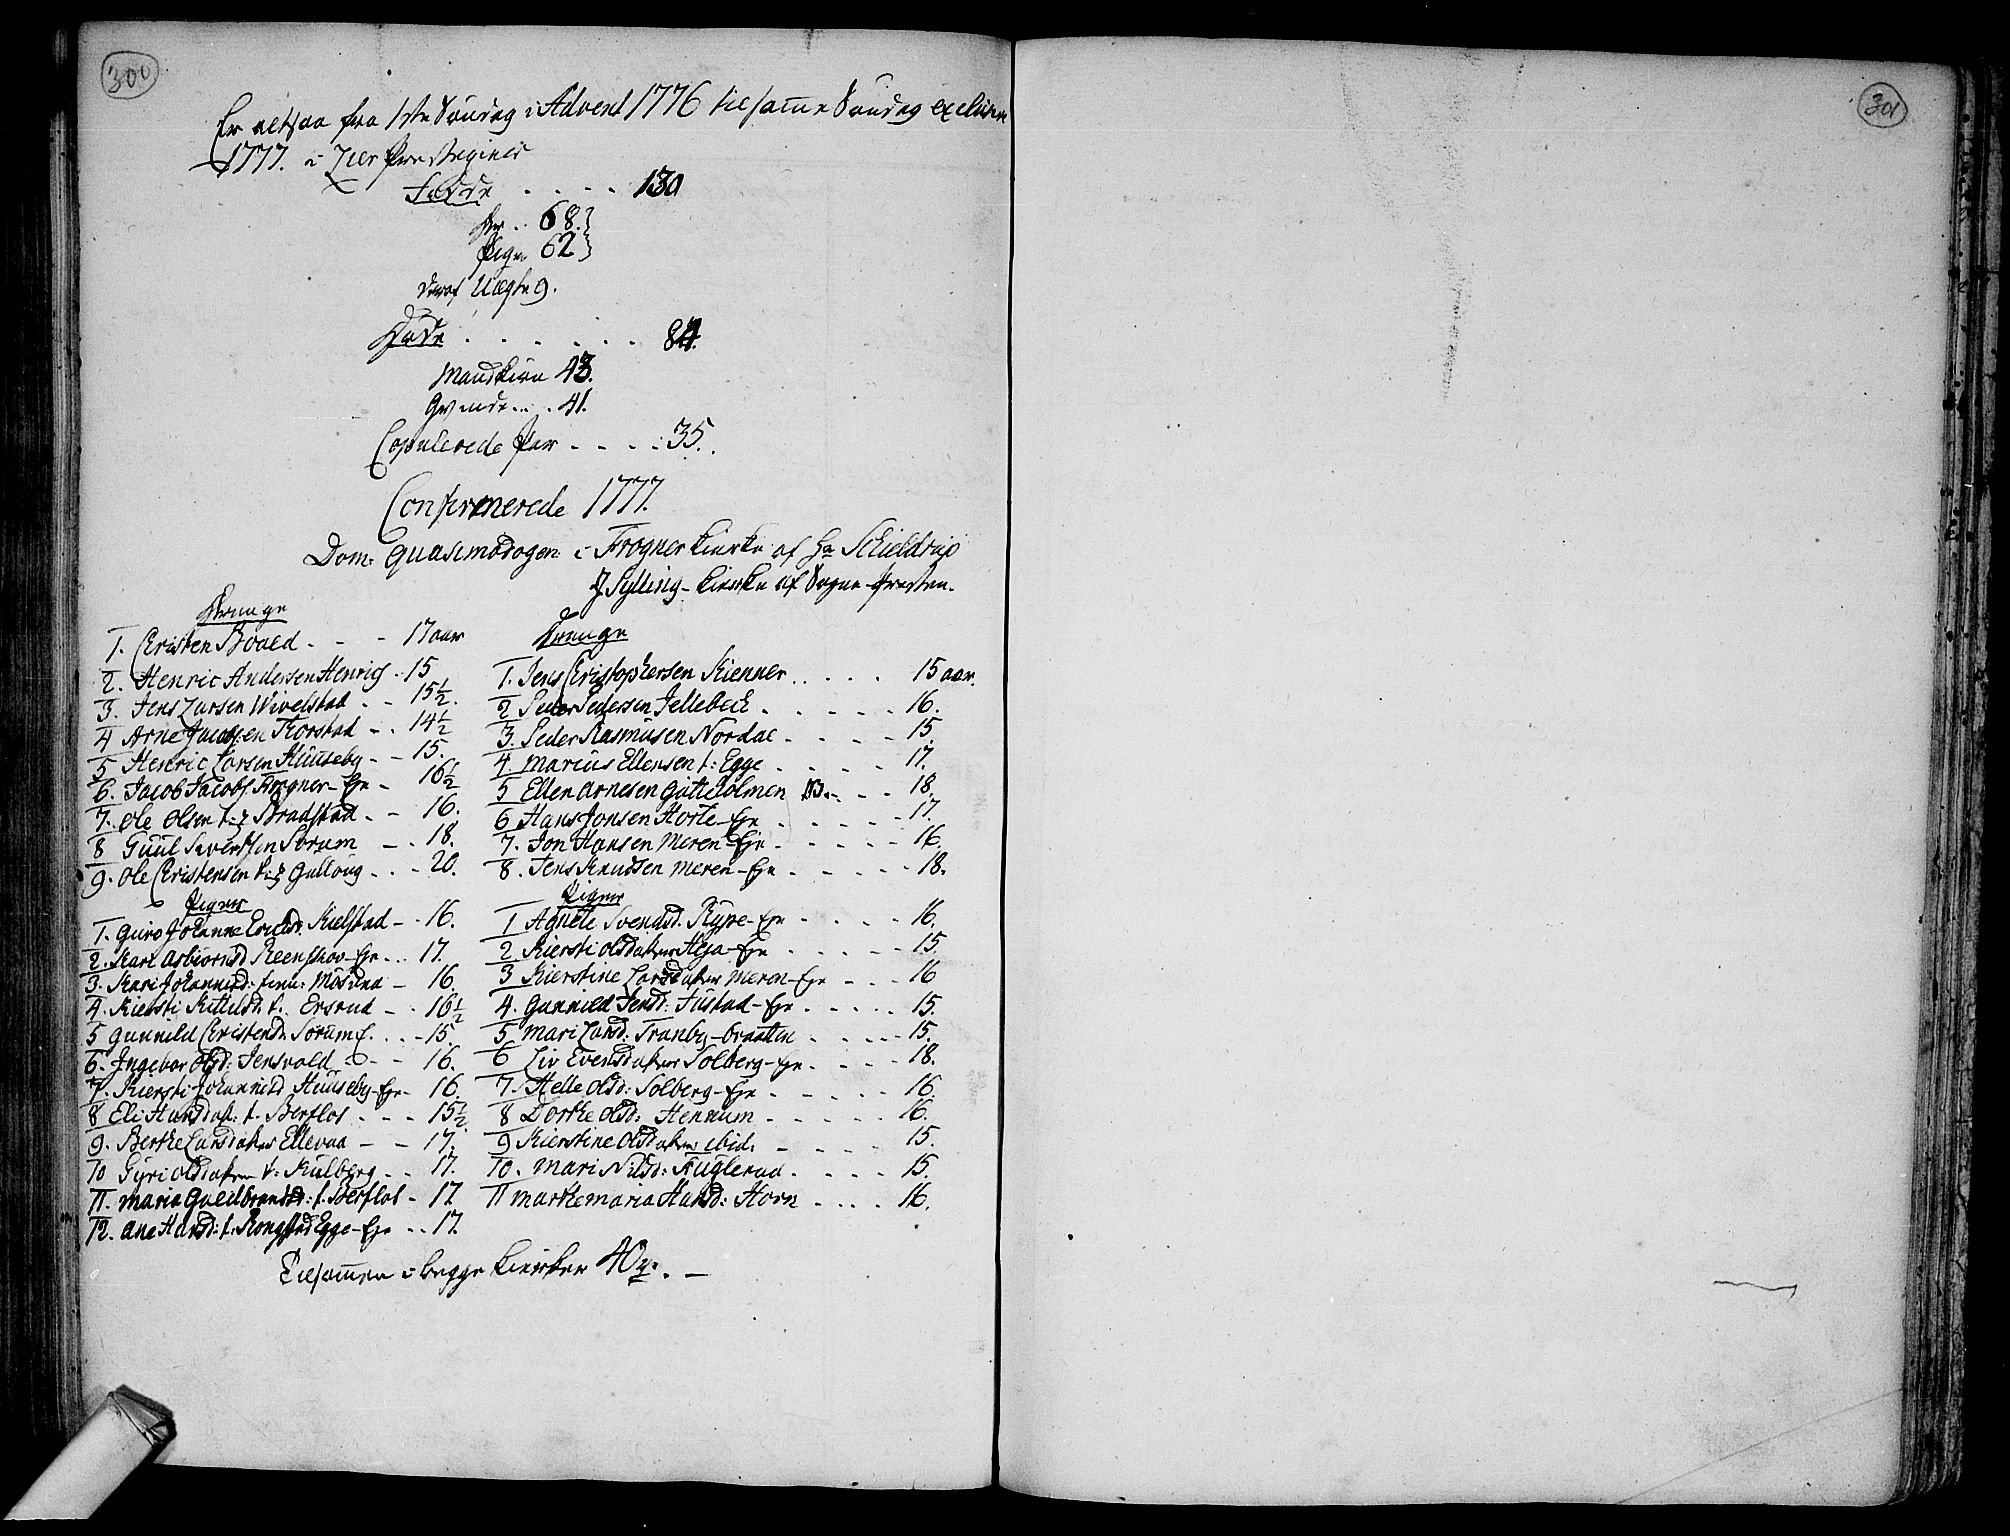 300
Er altsaa fra 1ste Søndag i Advent 1776 til samme Søndag exclusive
1777. i Lier Præstegield
Fødde . . . . 130
Dr. . . 68.
Piger 62
deraf Uægte 9.
Døde . . . . . . 84.
Mandkiøn 43.
Qvinde . . . 41.
Copulerede Par - - - - : 35.
Confirmerede 1777.
Dom: Quasimodogen: i Frogner Kierke af Hr Schieldrup
I Sylling-Kierke af Sogne-Præsten.
Drenge
1. Christen Boaed . - - 17 aar
2. Henric Andersen Henrigs . 15
3. Jens Larsen Wivelstad . . 15½.
4 Arne Jacobsen Thorstad - . 14½
5 Henric Larsen Huuseby - - 15.
6. Jacob Jacobs. Frogner-Eje - 16½
7. Ole Olsen t: Bradstad . - 16.
8 Guul Siversen Sørum - . 18.
9. Ole Christensen t: Gulloug . . - 20.
Piger
1. Guro Johanne Ericsd. Kielstad - . 16.
2. Kari Asbiörnsd Reenskov-Eje . . . 17.
3. Kari Johannisd: Møsund - 16.
4. Kiersti Kittilsd. t. Ersrud - . 16½
5 Gunnild Christensd. Sørum E. . . . 15.
6. Ingebor Olsd: Jensvold - - 16.
7. Kiersti Johannisd Huuseby-Eje - 16.
8 Eli Hansdat. t. Berflot . - - 15½
9. Berthe Larsdater Ellevaa - - 17.
10 Gyri Olsdatter t: Kulberg . - 17.
11. Maria Guldbrandsd: t. Berflot - 17.
12. Ane Hansd: t. Egge-Eje . . 17.
Drenge
1. Jens Christophersen Kienner . . . . . 15 aar.
2 Peder Pedersen Jellebech . - - - - 16.
3. Peder Rasmusen Nordal - . . - - 15.
4. Marius Ellensen t: Egge . - - - - 17.
5 Ellen Arnesen Gilteholmen . . - 18.
6 Hans Jonsen Horte-Eje . . - - - 17.
7. Jon Hansen Meren-Eje - . . . - 16.
8. Jens Knudsen Meren-Eje . - - - - 18.
Piger
1 Agnete Svendsd. Rype-Eje - - - - 16.
2 Kiersti Olsdatter Heja-Eje . . - - - 15.
3 Kierstine Larsdatter Meren-Eje - - - 16
4. Gunnild Jensd: Justad-Eje . - - - - 15.
5 Mari Larsd: Tranby-braatten . . . - - 15.
6 Liv Evensdatter Solberg-Eje . . . 18.
7. Helle Olsd: Solberg-Eje . - - - - 16.
8 Dorthe Olsd: Hennum - - - - 16.
9 Kierstine Olsdatter ibid: - - - - 15.
10. Mari Nilsd: Kuglerud . . . . . 15.
11 Marthe Maria Hansd: Horn . . . . 16.
Tilsammen i begge Kierker 40. -
301